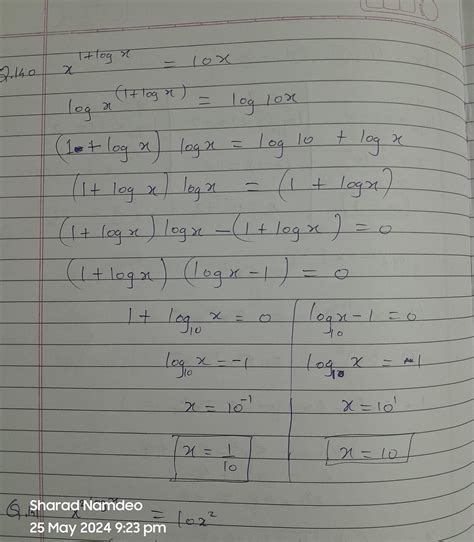 Q.140 x^(1+log x) = 10x
log x^(1+log x) = log 10x
(1 + log x) log x = log 10 + log x
(1 + log x) log x = (1 + log x)
(1 + log x) log x - (1 + log x) = 0
(1 + log x) (log x - 1) = 0
1 + log₁₀ x = 0 log₁₀ x - 1 = 0
log₁₀ x = -1 log₁₀ x = 1
x = 10⁻¹ x = 10¹
x = 1/10 x = 10
= 10x²
Sharad Namdeo
25 May 2024 9:23 pm